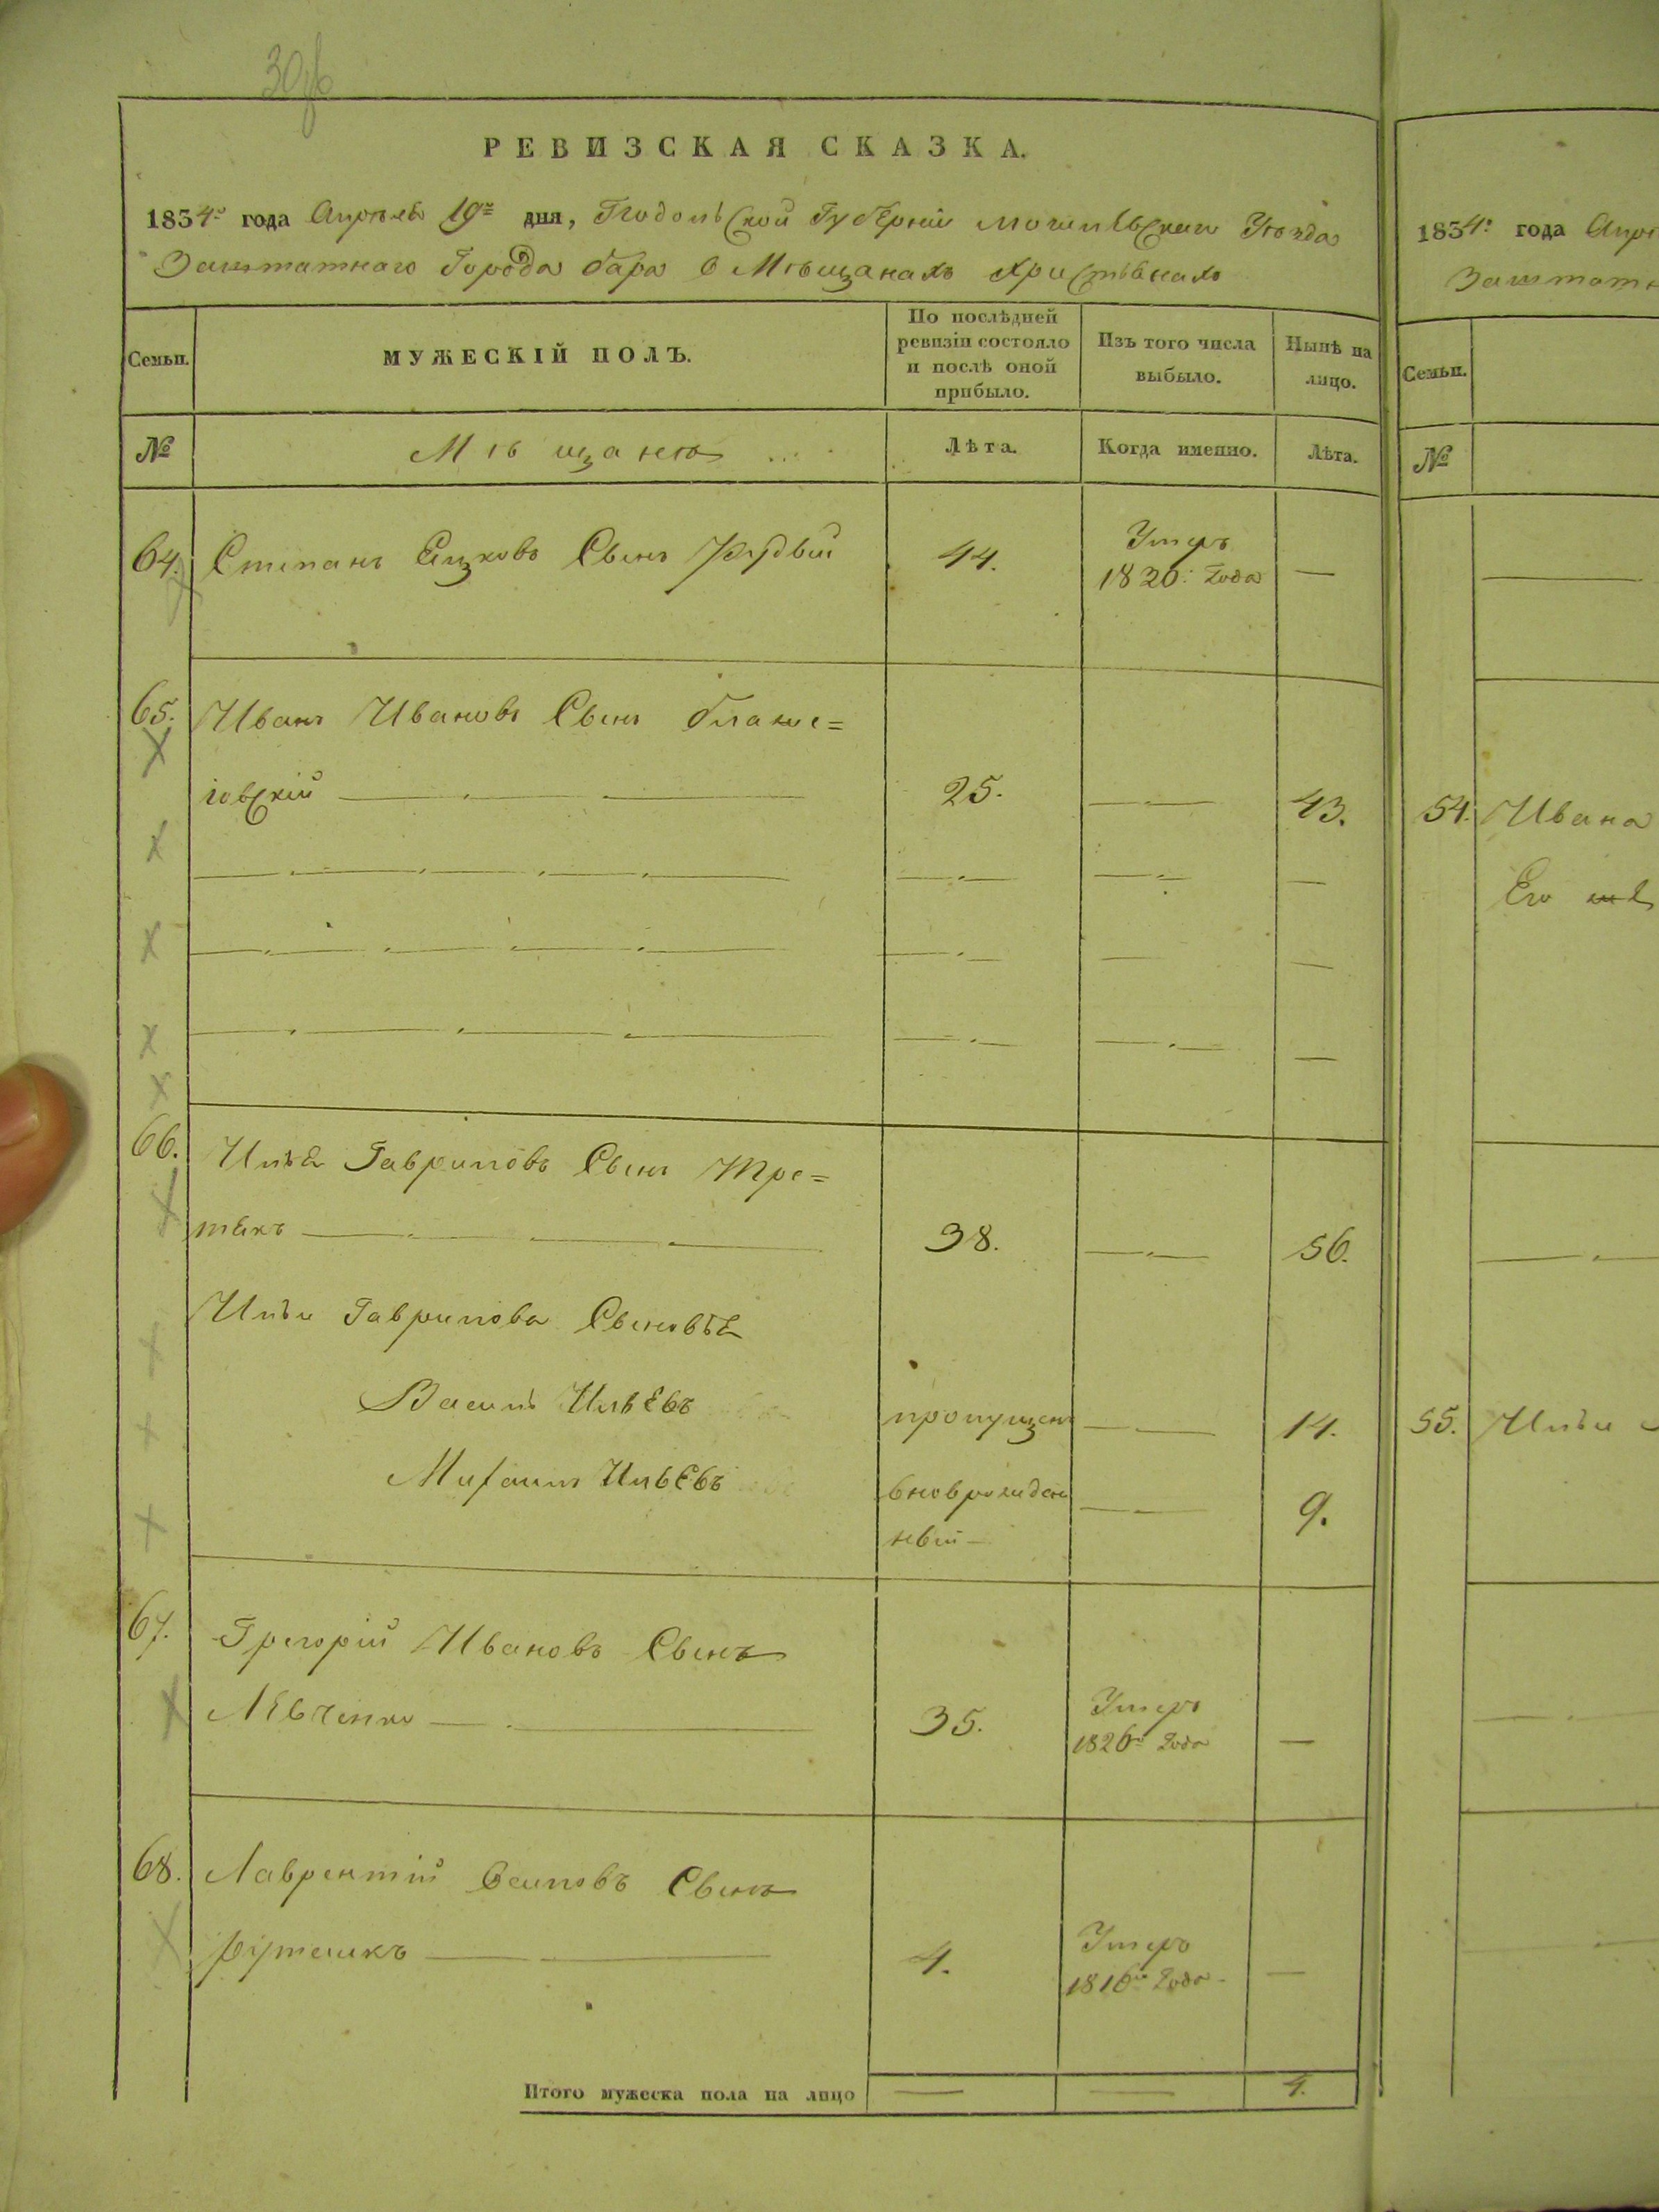 30об
РЕВИЗСКАЯ СКАЗКА.
1834го года Апрѣля 19го дня, Подольской Губерніи Могилевскаго Уѣзда
Заштатнаго Города Бара о Мѣщанахъ Христіянахъ
Семьи. МУЖЕСКІЙ ПОЛЪ. По послѣдней ревизіи состояло и послѣ оной прибыло. Изъ того числа выбыло. Нынѣ на лицо.
№ Мѣщане Лѣта. Когда именно. Лѣта.
64. Степанъ Яцковъ Сынъ 44. Умеръ 1820го Года —
65. Иванъ Ивановъ Сынъ
25. — 43.
66. Илья Гавриловъ Сынъ Тре=
тякъ 38. — 56.
Ильи Гаврилова Сыновья
Василь Ильевъ пропущенъ — 14.
Михаилъ Ильевъ вноврожден
ный — 9.
67. Григорій Ивановъ Сынъ
Левченко 35. Умеръ 1826го Года —
68. Лаврентій Осиповъ Сынъ
4. Умеръ 1816го Года —
Итого мужеска пола на лицо — — 4.
1834го года
Семьи.
№
54. Ивана
Его
55. Ильи